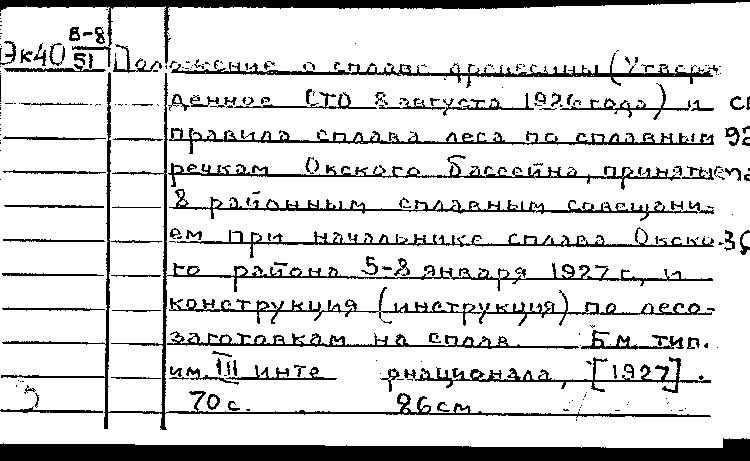 Эк40 В-8/51 Положение о сплаве древесины (Утверж-
денное СТО 8 августа 1926 года) и
правила сплава леса по сплавным
речкам Окского бассейна, принятые
8 районным сплавным совещани-
ем при начальнике сплава Окско-
го района 5-8 января 1927 г., и
конструкция (инструкция) по лесо-
заготовкам на сплав. Б.м. тип.
им. III инте рнационала, [1927].
70 с. 26 см.